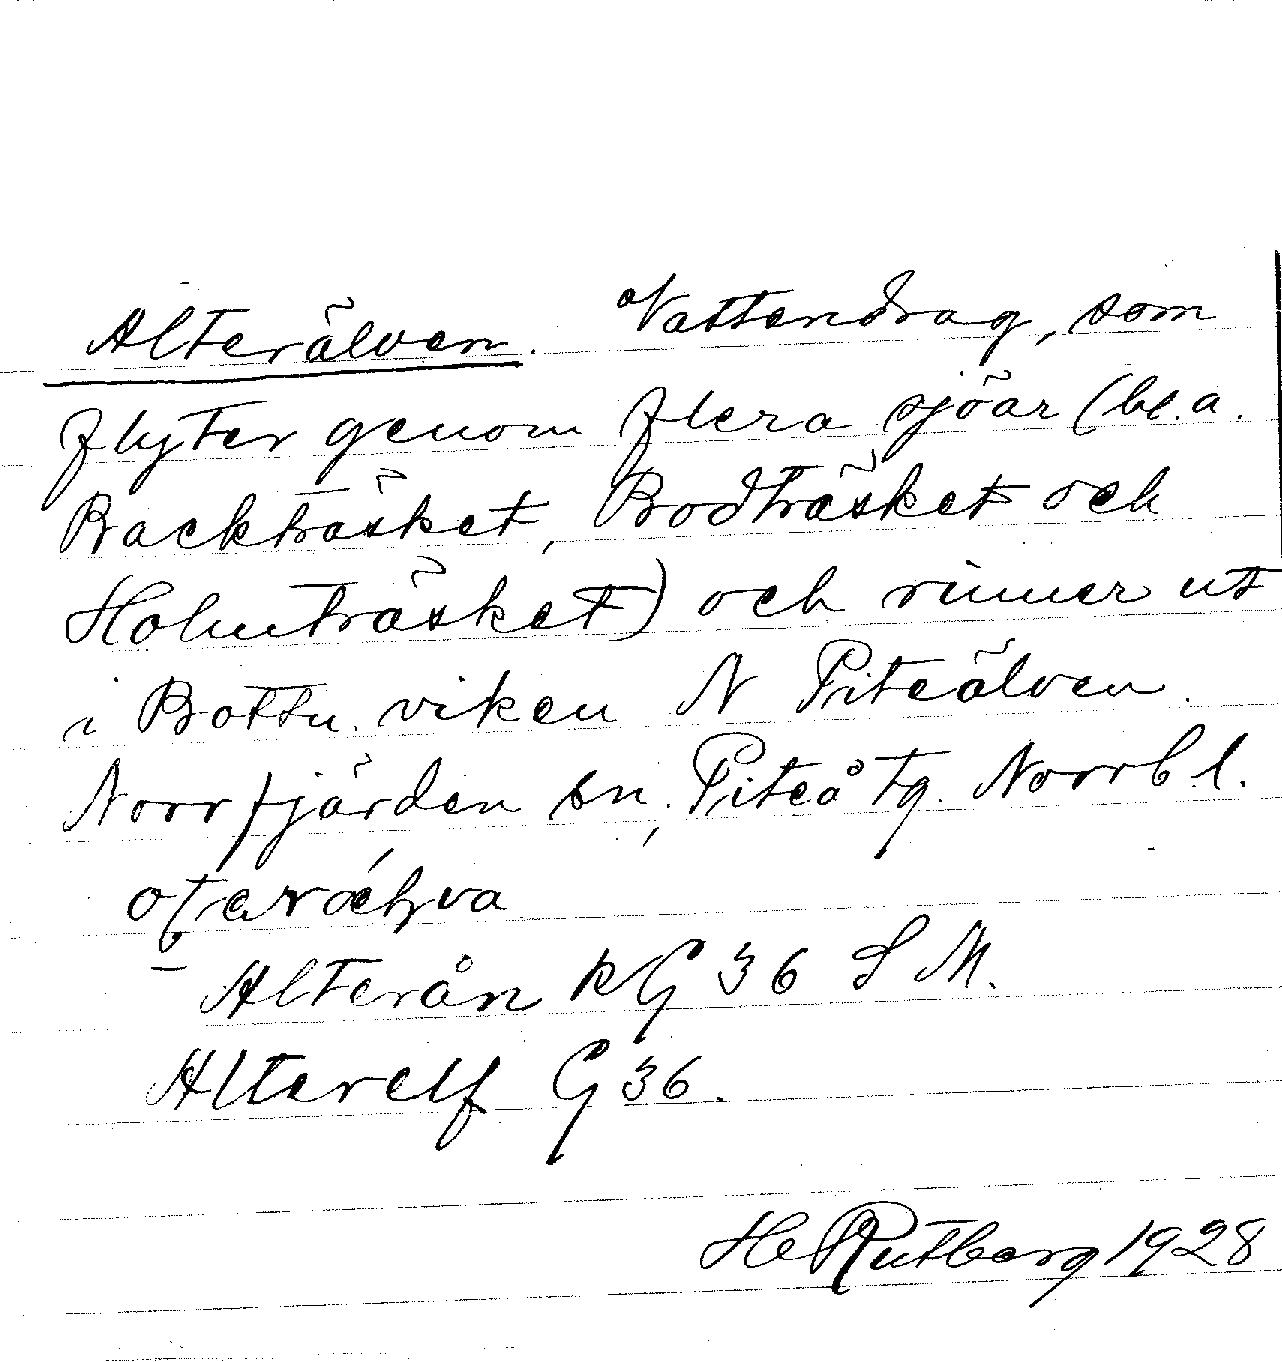 Alterälven. Vattendrag, som
flyter genom flera sjöar (bl.a.
Backträsket, Bodträsket och
Holmträsket) och rinner ut
i Bottn. viken N Piteälven.
Norrfjärden sn, Piteå tg. Norrb l.
Alterån KG 36 S M.
Alterelf G 36.
H Rutberg 1928